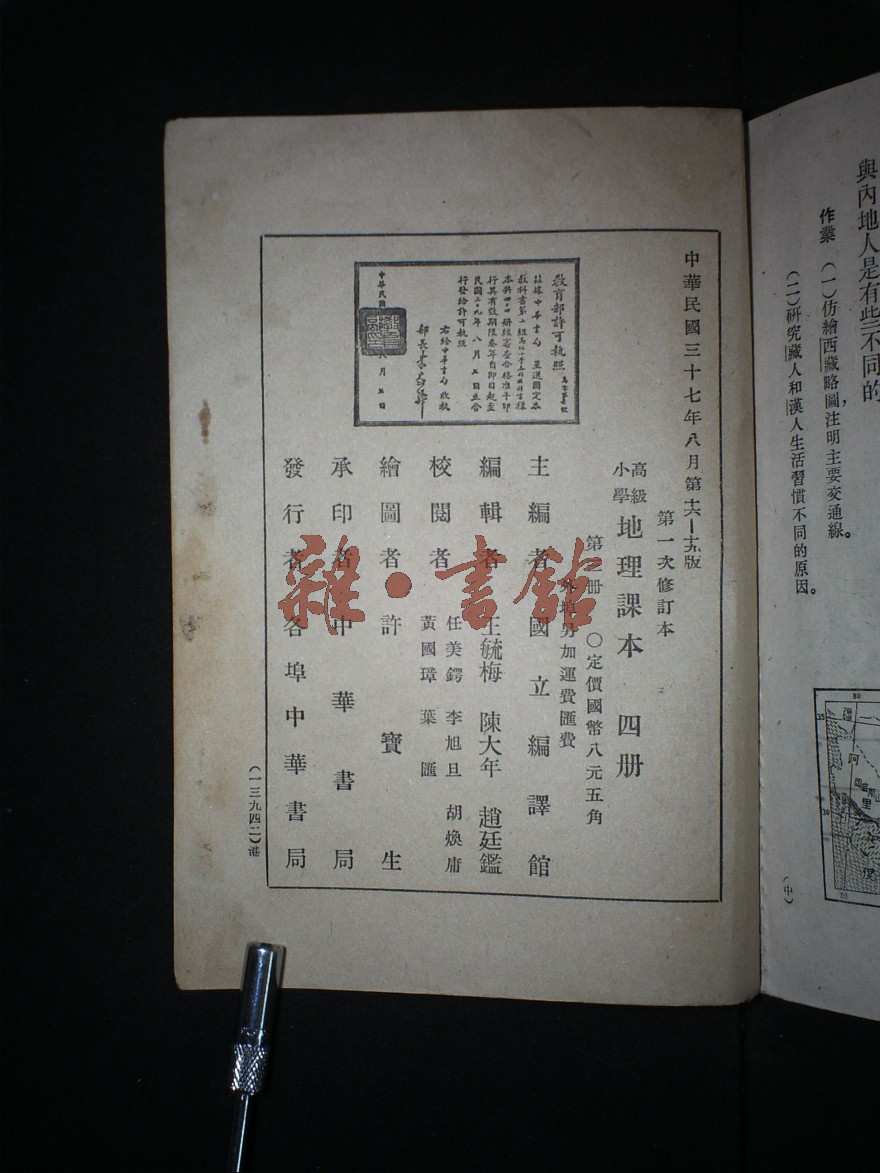 與內地人是有些不同的
作業 (一)仿繪西藏略圖,注明主要交通線。
(二)研究藏人和漢人生活習慣不同的原因。
(中)
中華民國三十七年八月第十六—十九版
第一次修訂本
高級小學 地理課本 四册
定價國幣八元五角
外埠另加運費匯費
主編者 國立編譯館
編輯者 王毓梅 陳大年 趙廷鑑
校閱者 任美鍔 李旭旦 胡煥庸
黃國璋 葉匯
繪圖者 許寶生
承印者 中華書局
發行者 各埠中華書局
(一三九四二)港
教育部許可執照
茲據中華書局呈送國定本
行發給許可執照
右給中華書局收執
雜·書館